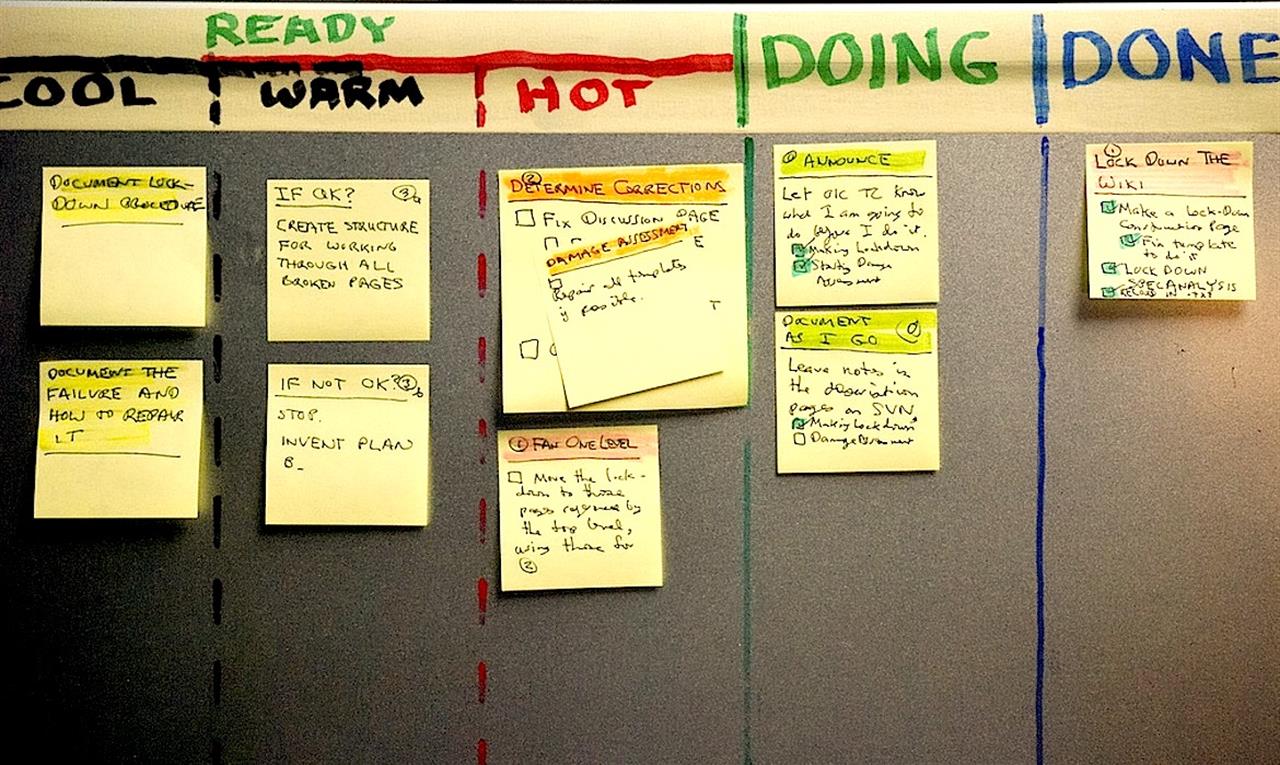 READY
COOL
WARM
HOT
DOING
DONE
DOCUMENT LOCK-
DOWN PROCEDURE
DOCUMENT THE
FAILURE AND
HOW TO REPAIR
IT
IF OK? 3a
CREATE STRUCTURE
FOR WORKING
THROUGH ALL
BROKEN PAGES
IF NOT OK? 3b
STOP.
INVENT PLAN
B_
2
DETERMINE CORRECTIONS
FIX DISCUSSION PAGE
E
T
DAMAGE ASSESSMENT
Repair all templates
if possible.
1 FAN ONE LEVEL
Move the lock-
down to those
pages referenced by
the top level,
using those for
2
0 ANNOUNCE
Let TZ know
what I am going to
do before I do it.
Making Lockdown
Starting Damage
Assessment
DOCUMENT
AS I GO 0
Leave notes in
the description
pages on SVN
Making Lockdown
Damage Assessment
1
LOCK DOWN THE
WIKI
Make a Lock-Down
Construction Page
Fix template
to do it
LOCK DOWN
SPEC ANALYSIS
RECORD IN .TXT